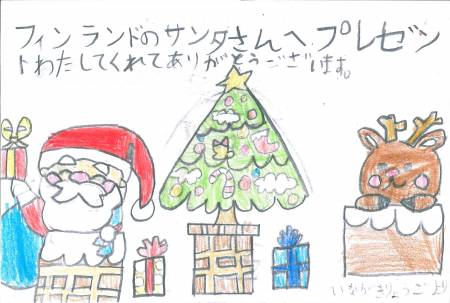 フィンランドのサンタさんへ プレゼン
トわたしてくれてありがとうございます。
いながきりょうごより